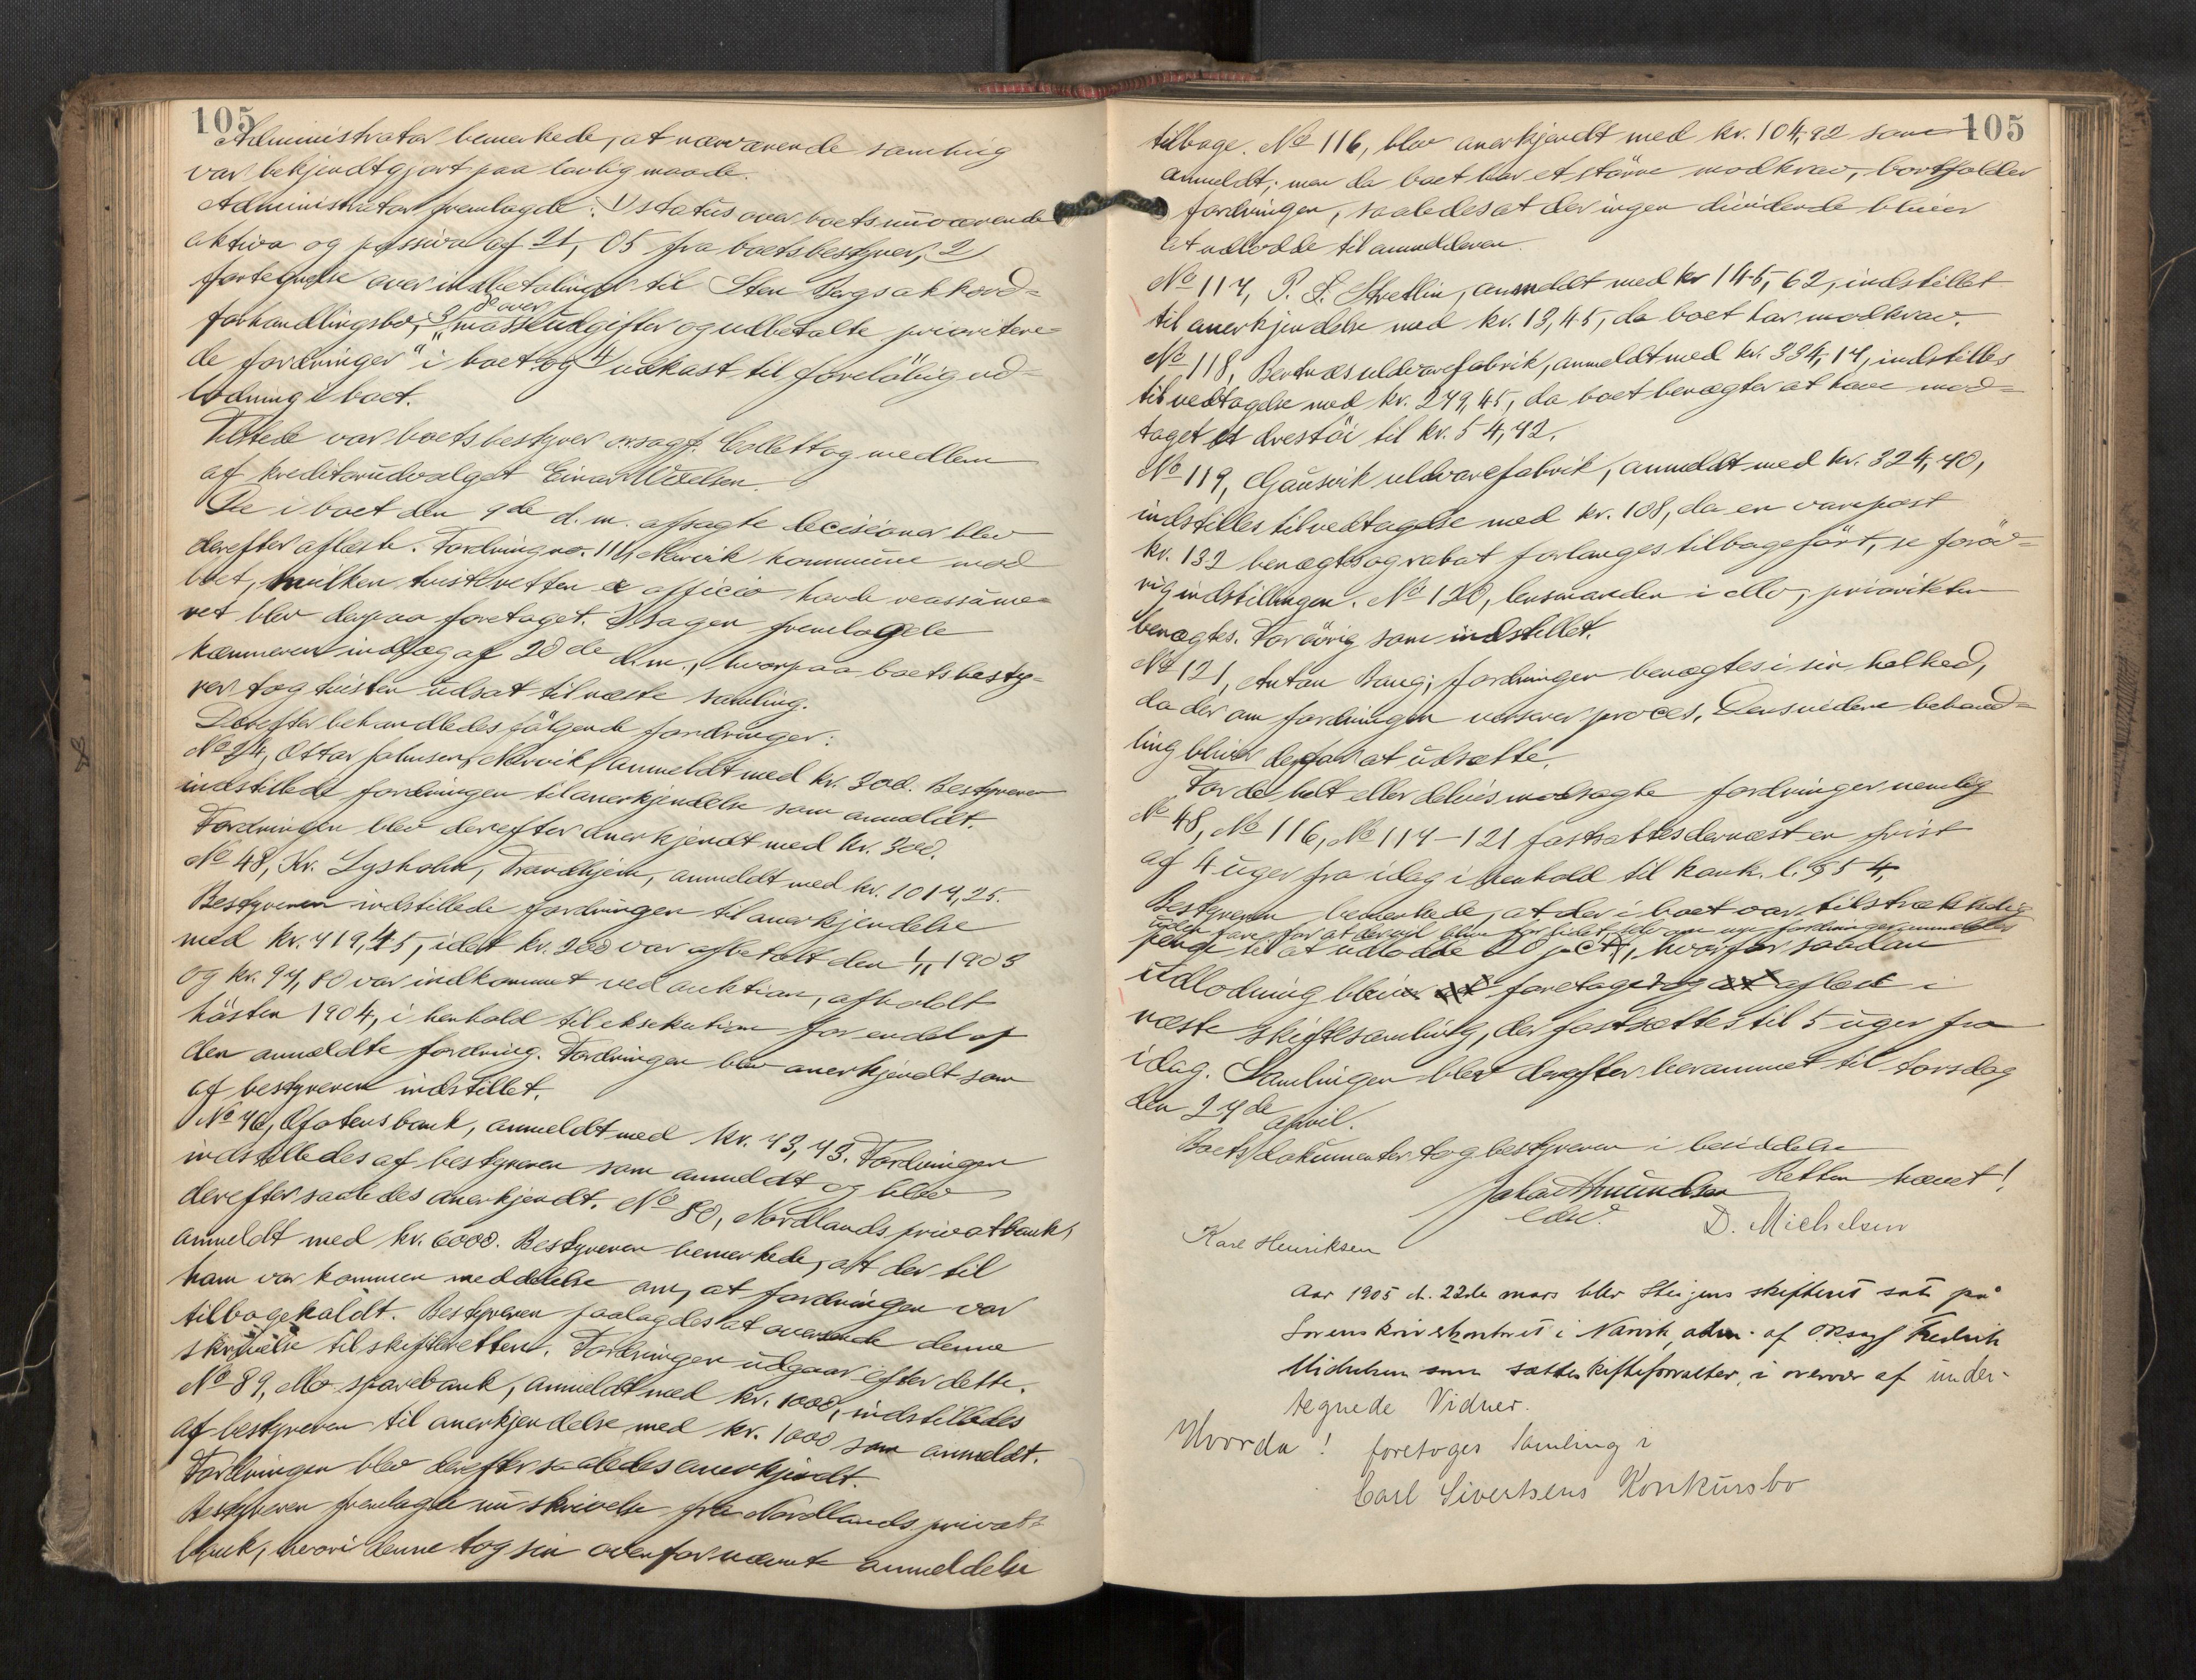 105
Administrator bemerkede, at nærværende samling
var bekjendtgjort paa lovlig maade.
Administrator fremlagde: 1) status over boets nuværende
aktiva og passiva af 21, 05 fra boets bestyrer, 2)
fortegnelse over indbetalinger til Sten Bergs akkord=
forhandlingsbo, 3) do over "masseudgifter og udbetalte prioritere=
de fordringer" i boet og 4) udkast til foreløbig ud=
lodning i boet.
Tilstede var boets bestyrer o.r.sagf. Collett og medlem
af kreditorudvalget Einar
De i boet den 9de d.m. afsagte decisioner blev
derefter aflæst. Fordring no. 114 Narvik kommune mod
boet, hvilken tvist retten ex officio havde reassume=
ret blev derpaa foretaget. I sagen fremlagde
kæmneren indlæg af 20de d.m., hvorpaa boets besty=
rer tog tvisten udsat til næste samling.
Derefter behandledes følgende fordringer:
No 24, Ottar Johnsen, Narvik, anmeldt med kr. 300. Bestyreren
indstillede fordringen til anerkjendelse som anmeldt.
Fordringen blev derefter anerkjendt med kr. 300.
No 48, Kr. Lysholm, Trondhjem, anmeldt med kr. 1017,25.
Bestyreren indstillede fordringen til anerkjendelse
med kr. 719,45, idet kr. 200 var afbetalt den 1/11 1903
og kr. 97,80 var indkommet ved auktion, afholdt
høsten 1904, i henhold til eksekution for endel af
den anmeldte fordring. Fordringen blev anerkjendt som
af bestyreren indstillet.
No 70, Ofotens bank, anmeldt med kr. 73,73. Fordringen
indstilledes af bestyreren som anmeldt og blev
derefter saaledes anerkjendt. No 80, Nordlands privatbank,
anmeldt med kr. 6000. Bestyreren bemerkede, at der til
ham var kommen meddelelse om, at fordringen var
tilbagekaldt. Bestyreren paalagdes at oversende denne
skrivelse til skifteretten. Fordringen udgaar efter dette.
No 89, Mo sparebank, anmeldt med kr. 1000, indstilledes
af bestyreren til anerkjendelse med kr. 1000 som anmeldt.
Fordringen blev derefter saaledes anerkjendt.
Bestyreren fremlagde nu skrivelse fra Nordlands privat=
bank, hvori denne tog sin ovenfor nævnte anmeldelse
105
tilbage. No 116, blev anerkjendt med kr. 104,92 som
anmeldt; men da boet har et større modkrav, bortfalder
fordringen, saaledes at der ingen dividende bliver
at udlodde til anmelderen.
No 117, P. S. Stretlin, anmeldt med kr 145,62, indstillet
til anerkjendelse med kr. 13,45, da boet har modkrav.
No 118, uldvarefabrik, anmeldt med kr. 334,17, indstilles
til vedtagelse med kr. 279,45, da boet benægter at have mod=
taget et drestøi til kr. 54,72.
No 119, Gausvik uldvarefabrik, anmeldt med kr. 324,40,
indstilles til vedtagelse med kr. 108, da en varepost
kr. 132 benægtes og rabat forlanges tilbageført, se forøv=
rig indstillingen. No 120, lensmanden i Mo, prioriteten
benægtes. Forøvrig som indstillet.
No 121, Anton Bang; fordringen benægtes i sin helhed,
da der om fordringen verserer proces. Dens videre behand=
ling bliver derfor at udsætte.
For de helt eller delvis modsagte fordringer nemlig
No 48, No 116, No 117-121 fastsattes dernæst en frist
af 4 uger fra idag i henhold til konk. l. § 54.
Bestyreren bemerkede, at der i boet var tilstrækkelig
uden fare for at der vil blive for lidet, selv om nye fordringer anmeldtes
penge til at udlodde 20 pCt, hvorfor saadan
udlodning bliver foretaget og aflæst i
næste skiftesamling, der fastsættes til 5 uger fra
idag. Samlingen blev derefter berammet til torsdag
den 27de april.
Boets dokumenter tog bestyreren i besiddelse
Retten hævet!
Johan Amundsen
edsv.
D. Michelsen
Karl Henriksen
Aar 1905 d. 22de mars blev Steigens skifteret sat på
Sorenskriverkontoret i Narvik, adm. af O.R.sagf Fredrik
Michelsen som sætteskifteforvalter, i overvær af under-
tegnede Vidner.
Hvorda! foretoges Samling i
Carl Sivertsens Konkursbo